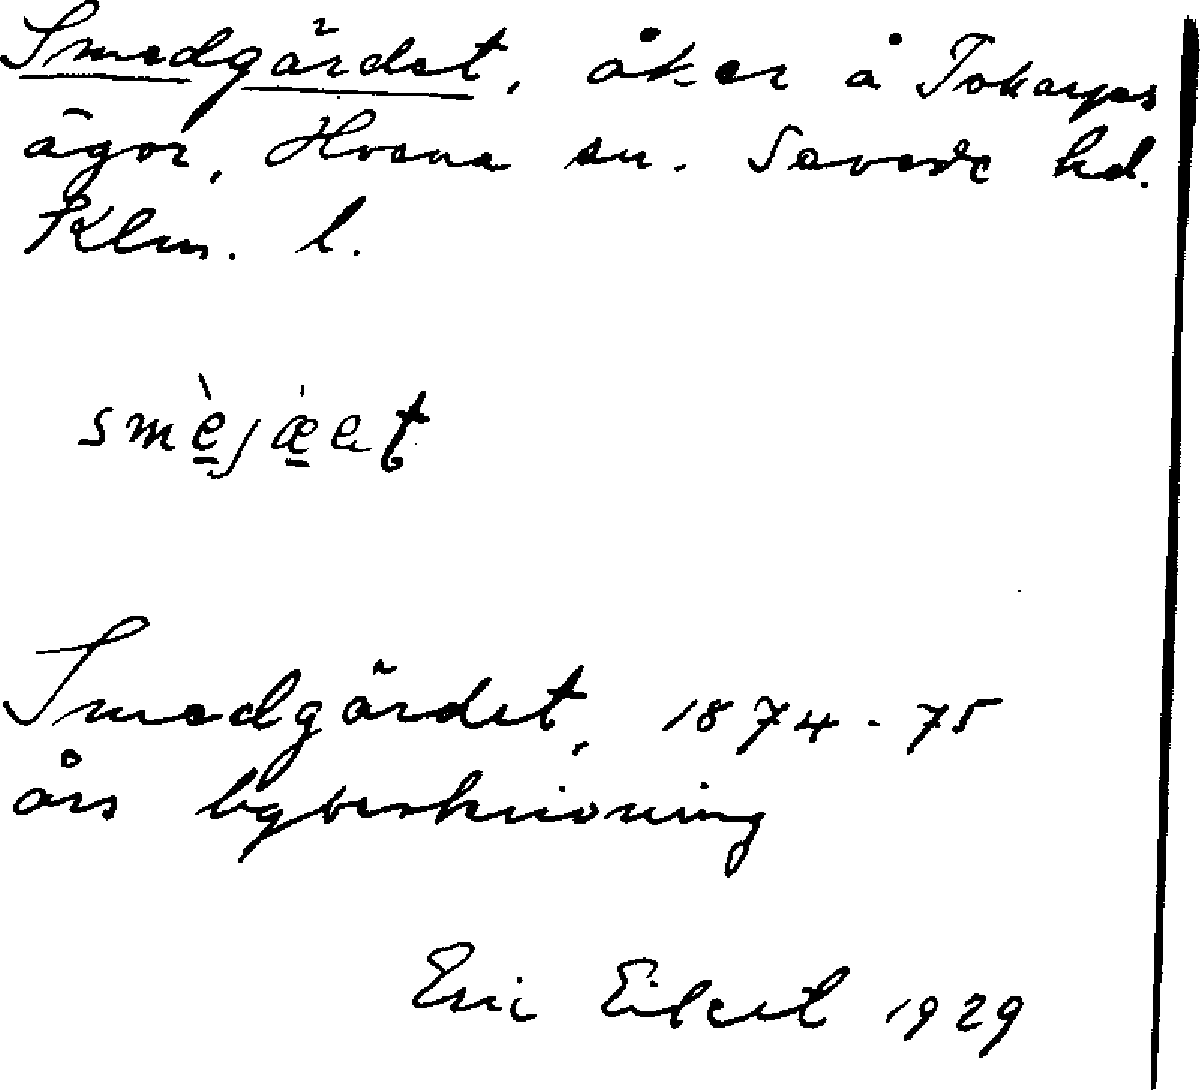 Smedgärdet, åker å Tokarps
ägor, Hvena sn. Sevede hd.
Klm. l.
smèjæet
Smedgärdet, 1874-75
års bybeskrivning
Eric Eilert 1929